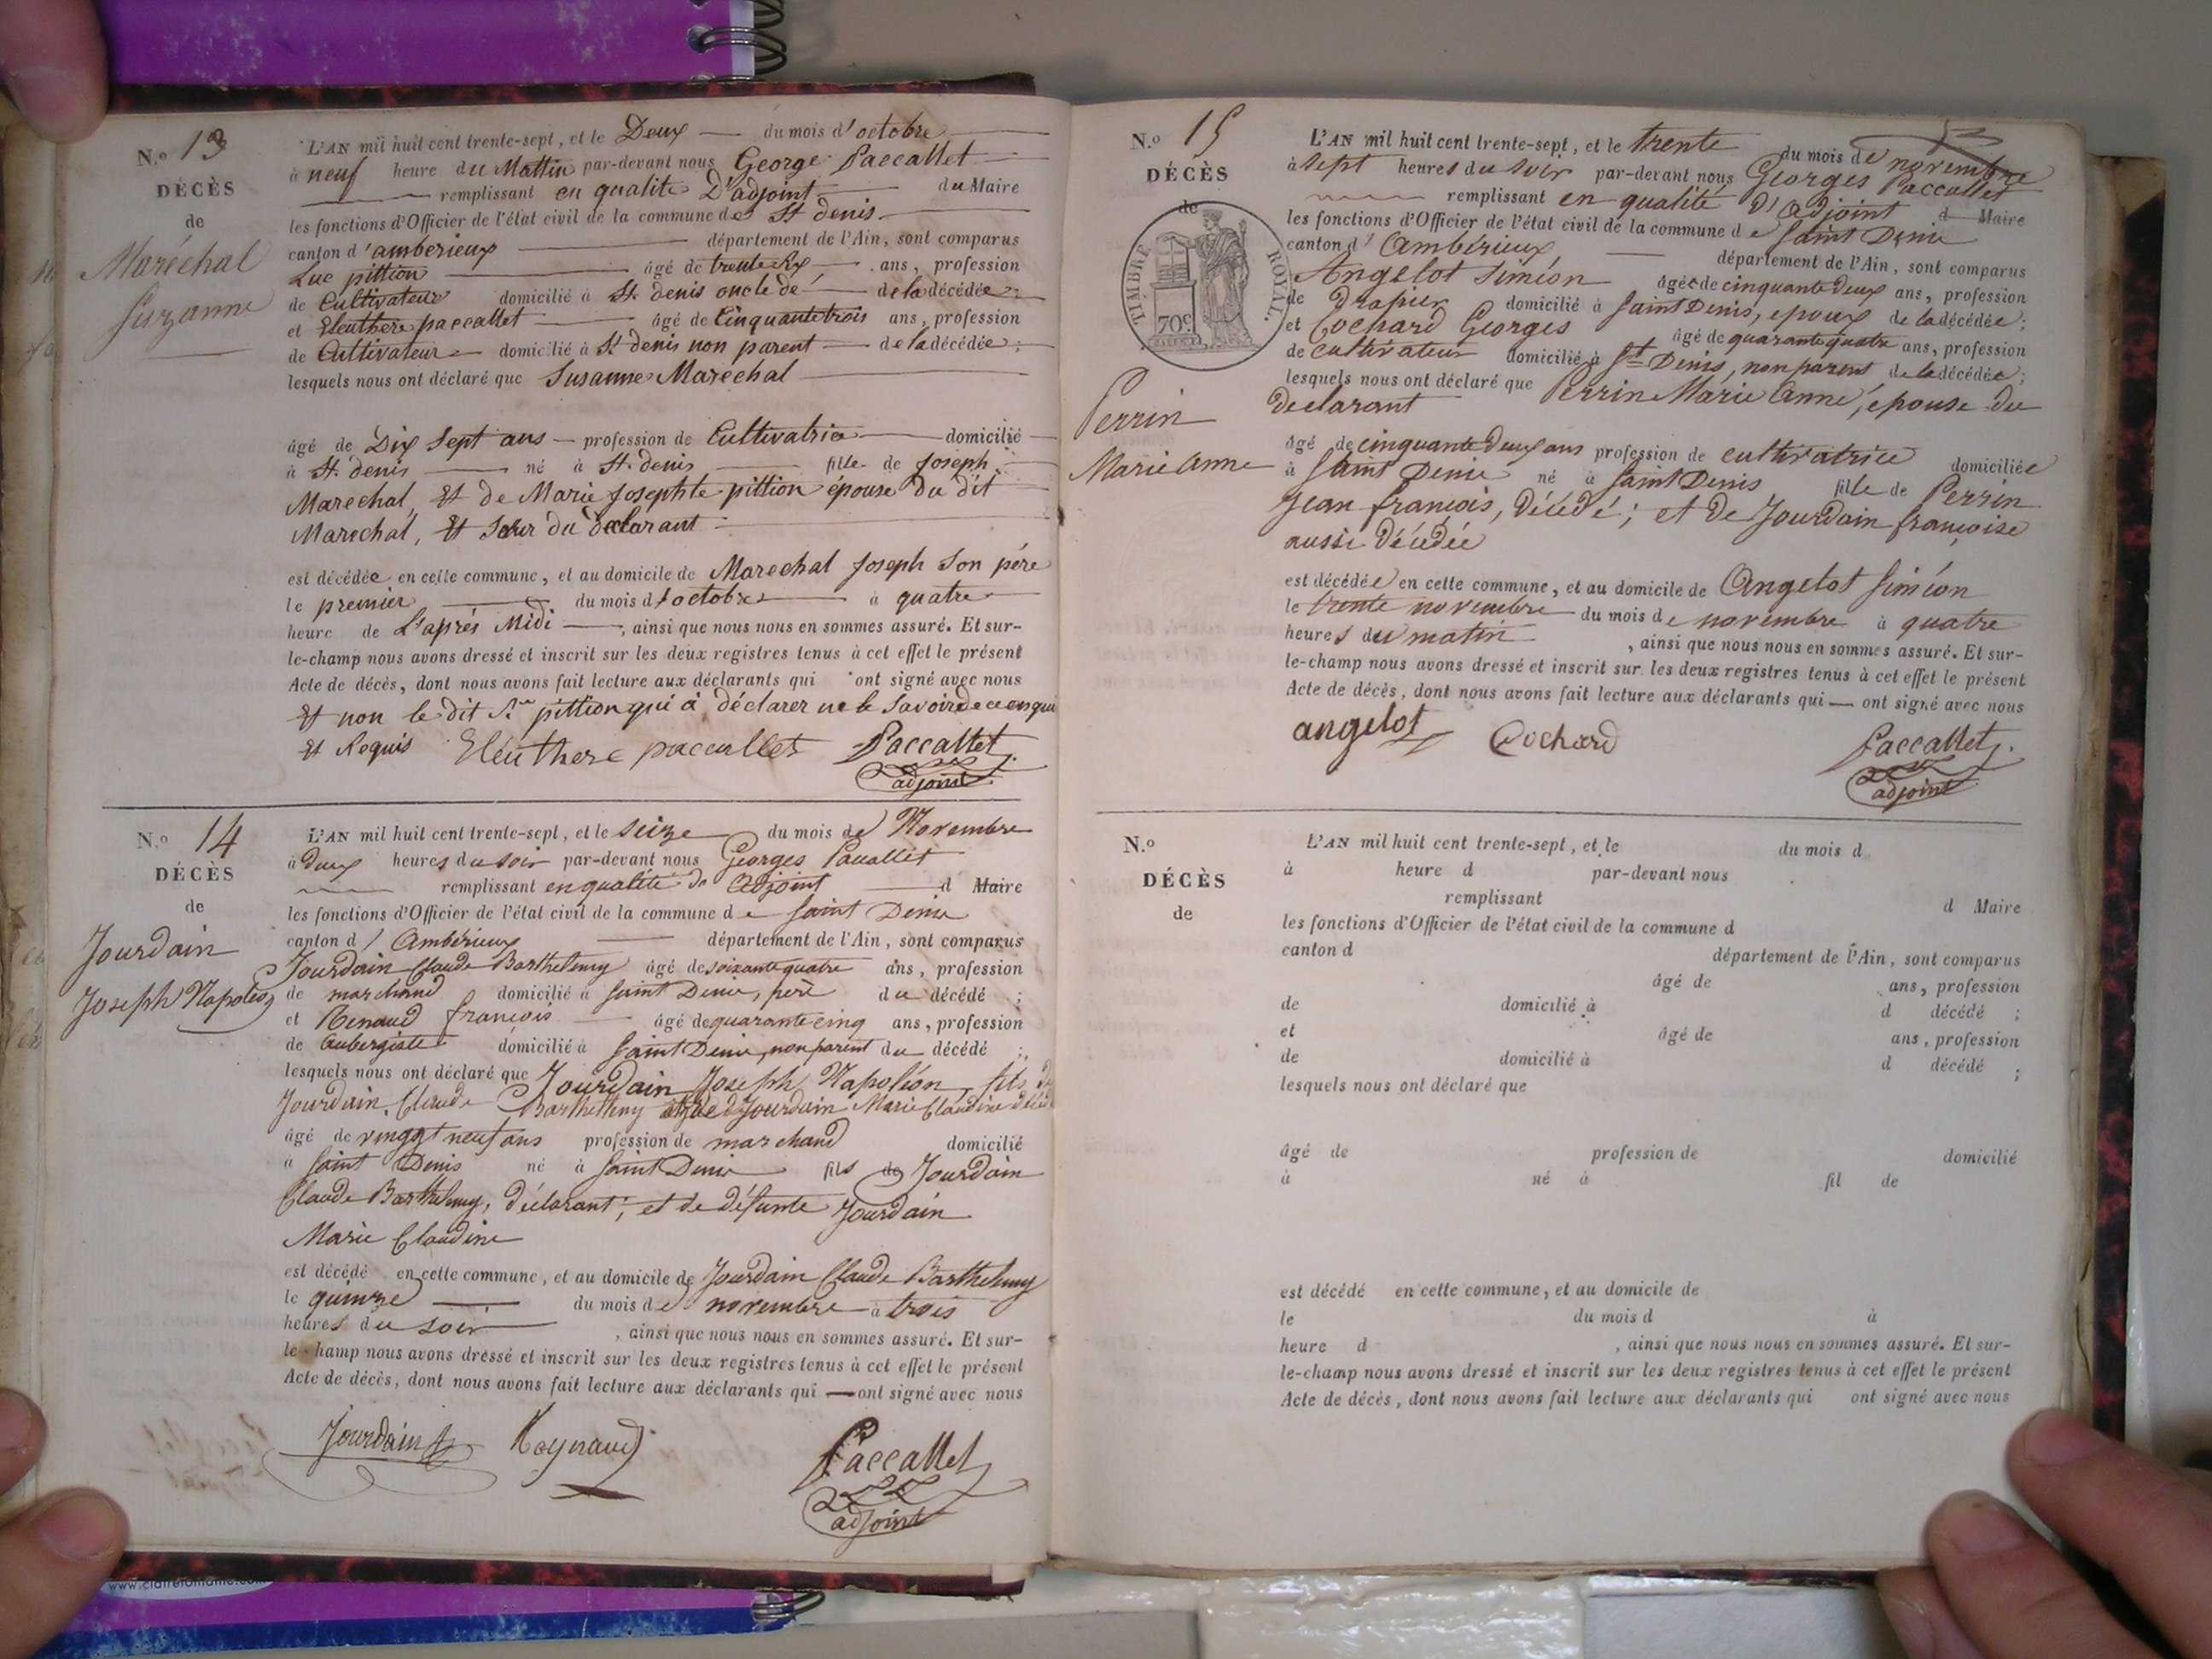 N.º 13
DÉCÈS
de
Maréchal
Suzanne
L'AN mil huit cent trente-sept, et le Deux du mois d'octobre
à neuf heure du Mattin par-devant nous George Paccallet
remplissant en qualité D'adjoint du Maire
les fonctions d'Officier de l'état civil de la commune de St denis
canton d'amberieux département de l'Ain, sont comparus
Luc pittion âgé de trente six ans, profession
de Cultivateur domicilié à St. denis oncle de de la décédée;
et Eleuthere paccallet âgé de Cinquante trois ans, profession
de Cultivateur domicilié à St denis non parent de la décédée;
lesquels nous ont déclaré que Susanne Marechal
âgé de Dix Sept ans profession de Cultivatrice domicilié
à St. denis né à St. denis fille de Joseph
Marechal, Et de Marie Josephte pittion épouse du dit
Marechal, Et Sœur du declarant
est décédée en cette commune, et au domicile de Marechal Joseph Son pére
le premier du mois d'octobre à quatre
heure de L'aprés Midi, ainsi que nous nous en sommes assuré. Et sur-
le-champ nous avons dressé et inscrit sur les deux registres tenus à cet effet le présent
Acte de décès, dont nous avons fait lecture aux déclarants qui ont signé avec nous
Et non le dit pittion qui à déclarer ne le Savoir de ce enquis
Et Requis Eleuthere paccallet Paccallet
adjoint
N.º 14
DÉCÈS
de
Jourdain
Joseph Napoléon
L'AN mil huit cent trente-sept, et le seize du mois de Novembre
à deux heures du soir par-devant nous Georges Paccallet
remplissant en qualité de Adjoint d Maire
les fonctions d'Officier de l'état civil de la commune de Saint Denis
canton d'Ambérieux département de l'Ain, sont comparus
Jourdain Claude Barthelemy âgé de soixante quatre ans, profession
de marchand domicilié à Saint Denis, père du décédé;
et Renaud françois âgé de quarante cinq ans, profession
de Aubergiste domicilié à Saint Denis, non parent du décédé;
lesquels nous ont déclaré que Jourdain Joseph Napoléon, fils de
Jourdain Claude Barthelemy et de Jourdain Marie Claudine
âgé de vingt neuf ans profession de marchand domicilié
à Saint Denis né à Saint Denis fils de Jourdain
Claude Barthelemy, déclarant; et de défunte Jourdain
Marie Claudine
est décédé en cette commune, et au domicile de Jourdain Claude Barthelemy
le quinze du mois de novembre à trois
heures du soir, ainsi que nous nous en sommes assuré. Et sur-
le-champ nous avons dressé et inscrit sur les deux registres tenus à cet effet le présent
Acte de décès, dont nous avons fait lecture aux déclarants qui ont signé avec nous
Jourdain Reynaud Paccallet
adjoint
N.º 15
DÉCÈS
de
TIMBRE ROYAL.
70 c
Perrin
Marie Anne
L'AN mil huit cent trente-sept, et le trente du mois de novembre
à sept heures du soir par-devant nous Georges Paccallet
remplissant en qualité d'Adjoint d Maire
les fonctions d'Officier de l'état civil de la commune de Saint Denis
canton d'Ambérieux département de l'Ain, sont comparus
Angelot Siméon âgé de cinquante deux ans, profession
de Drapier domicilié à Saint Denis, epoux de la décédée;
et Cochard Georges âgé de quarante quatre ans, profession
de cultivateur domicilié à St Denis, non parent de la décédée;
lesquels nous ont déclaré que Perrin Marie Anne, épouse du
declarant
âgé de cinquante deux ans profession de cultivatrice domiciliée
à Saint Denis né à Saint Denis fille de Perrin
Jean françois, décédé; et de Jourdain françoise
aussi décédée
est décédée en cette commune, et au domicile de Angelot Siméon
le trente novembre du mois de novembre à quatre
heures du matin, ainsi que nous nous en sommes assuré. Et sur-
le-champ nous avons dressé et inscrit sur les deux registres tenus à cet effet le présent
Acte de décès, dont nous avons fait lecture aux déclarants qui ont signé avec nous
angelot Cochard Paccallet
adjoint
N.º
DÉCÈS
de
L'AN mil huit cent trente-sept, et le du mois d
à heure d par-devant nous
remplissant d Maire
les fonctions d'Officier de l'état civil de la commune d
canton d département de l'Ain, sont comparus
âgé de ans, profession
de domicilié à d décédé;
et âgé de ans, profession
de domicilié à d décédé;
lesquels nous ont déclaré que
âgé de profession de domicilié
à né à fil de
est décédé en cette commune, et au domicile de
le du mois d à
heure d, ainsi que nous nous en sommes assuré. Et sur-
le-champ nous avons dressé et inscrit sur les deux registres tenus à cet effet le présent
Acte de décès, dont nous avons fait lecture aux déclarants qui ont signé avec nous